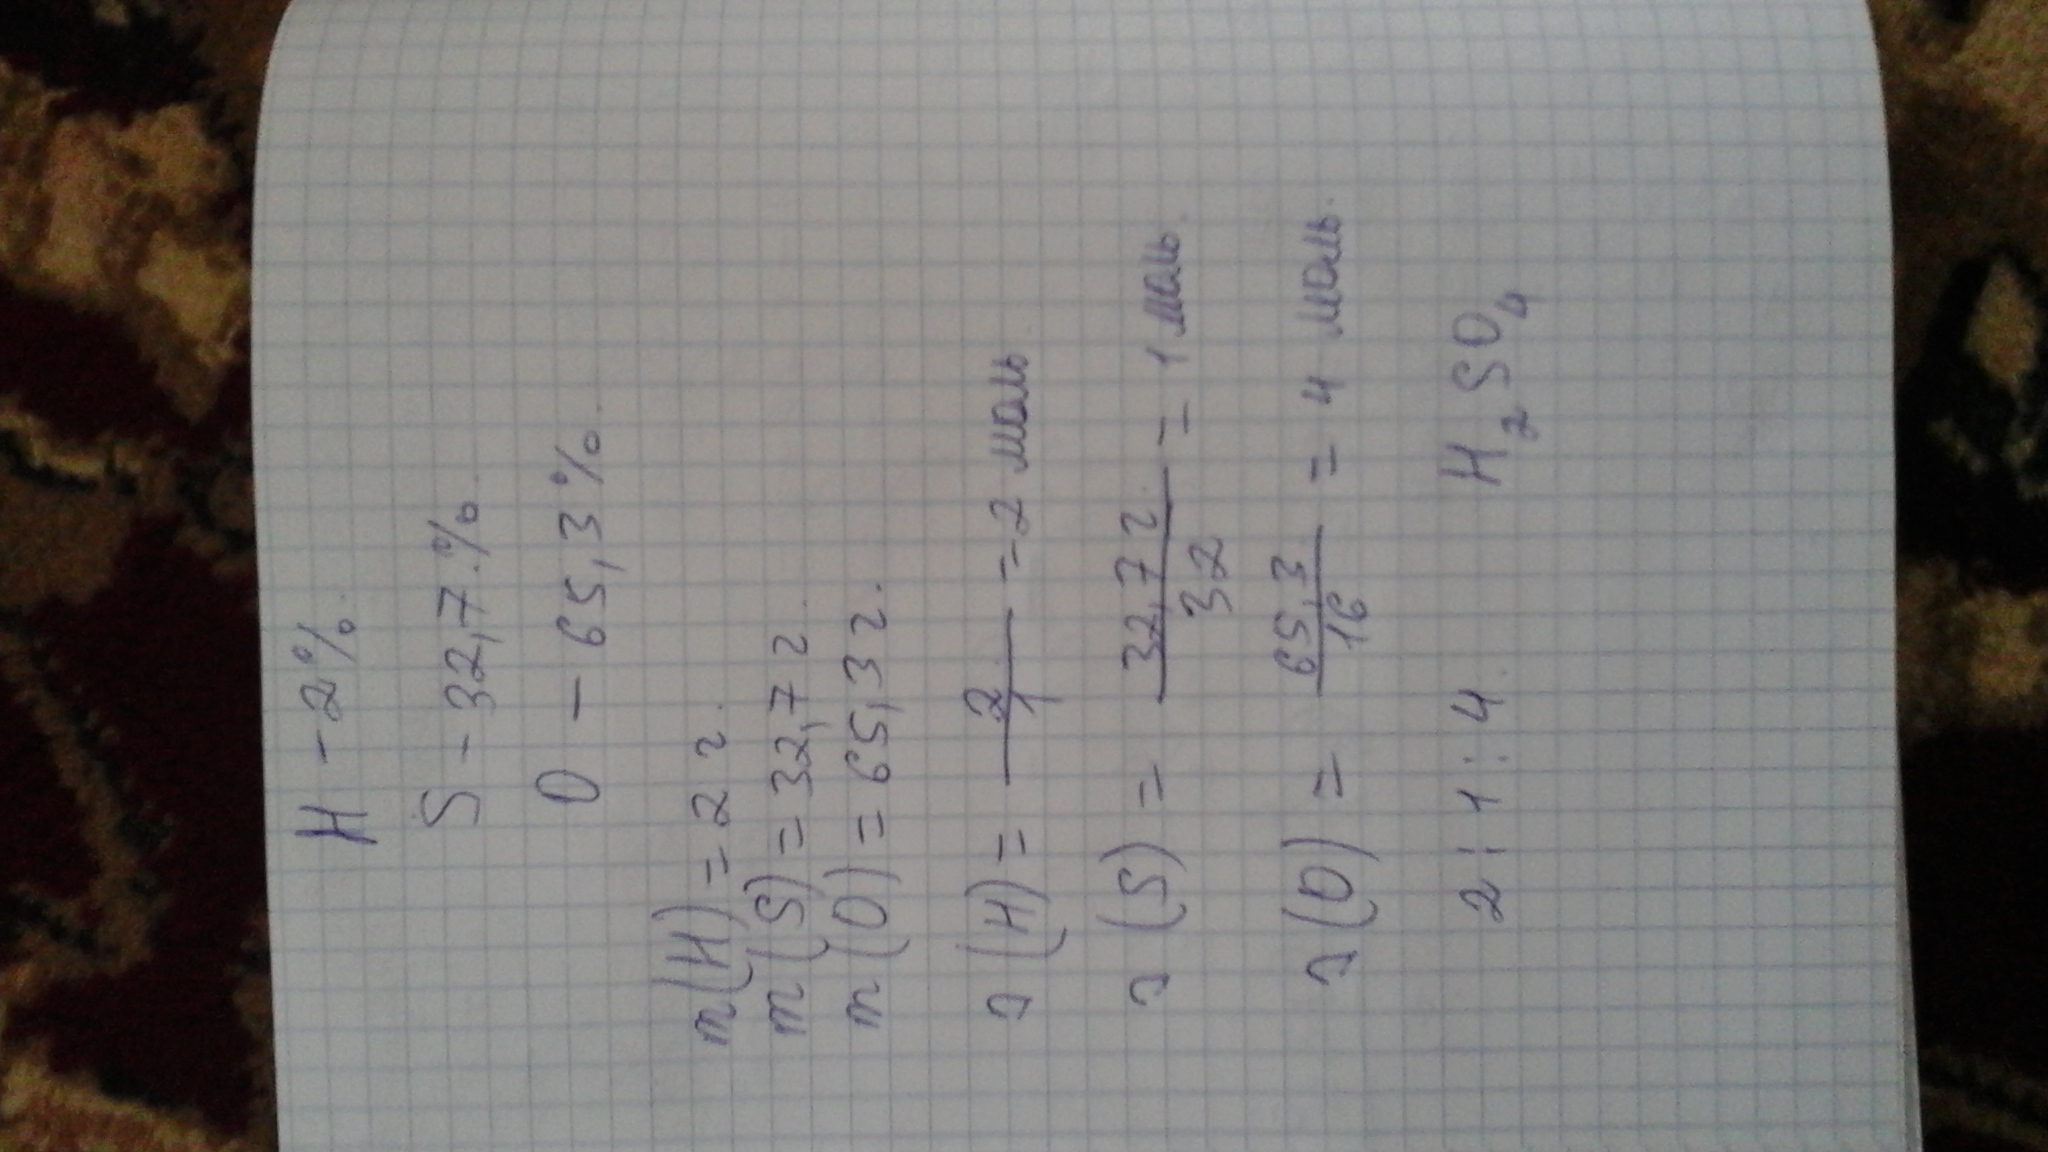 H - 2%.
S - 32,7%.
O - 65,3%.
m(H) = 2 г.
m(S) = 32,7 г.
m(O) = 65,3 г.
ν(H) = 2/1 = 2 моль
ν(S) = 32,7 г/32 = 1 моль.
ν(O) = 65,3/16 = 4 моль.
2:1:4. H₂SO₄